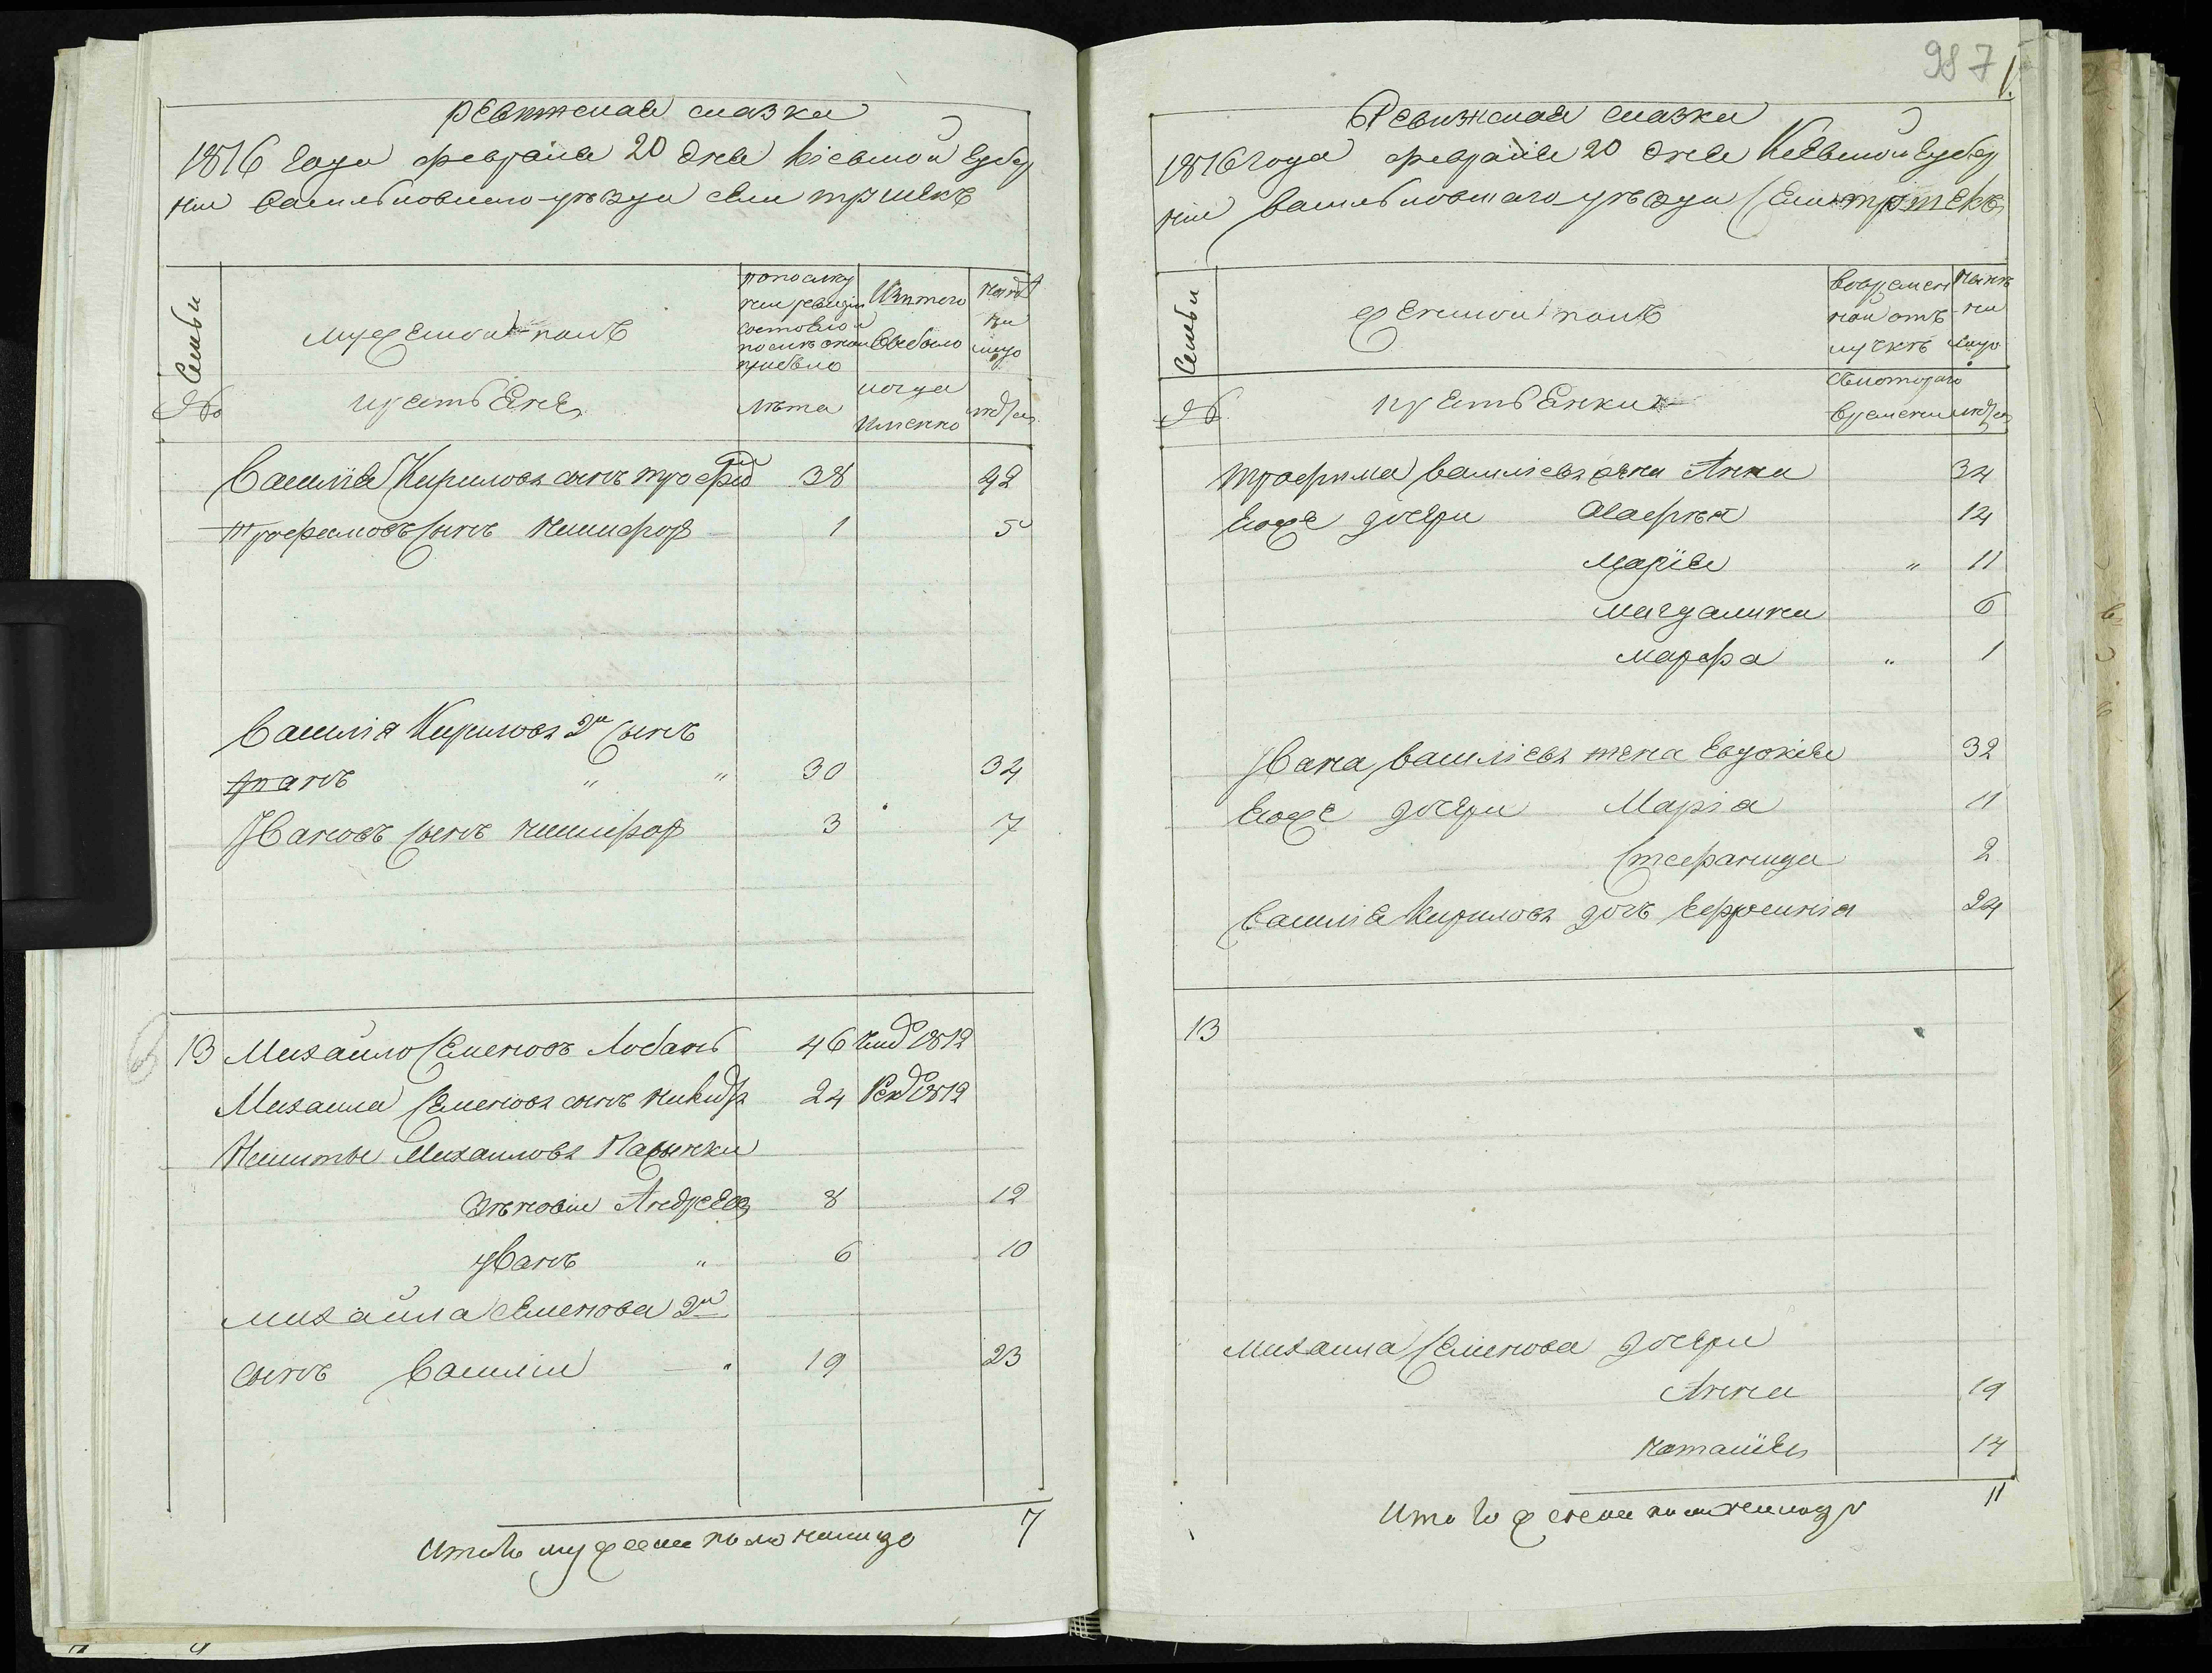 Ревижская сказка
1816 года февраля 20 дня Кіевской Губер
ніи Васильковского уѣзда села
Семьи
№
мужеской полъ
крестьяне
по послѣд
ней ревизіи
состояло и
послѣ оной
прибыло
лѣта
Изъ того
выбыло
когда
именно
Нынѣ
на
лицо
лѣта
Василія Кирилова сынъ Трофим 38 42
Трофимовъ сынъ Никифор 1 5
Василія Кирилова 2й сынъ
Иванъ " " 30 34
Ивановъ сынъ Никифор 3 7
13 Михайло Семеновъ Лобань 46 1812
Михаила Семенова сынъ Никита 24 1812
Никиты Михаилова Пасынки
Зѣновій Андреевъ 8 12
Иванъ " 6 10
Михайла Семенова 2й
сынъ Василій " 19 23
Итого мужеска пола налицо 7
987
Ревижская сказка
1816 года февраля 20 дня Кіевской Губер
ніи Васильковского уѣзда Села
Семьи
№
женской полъ
крестьянки
Во времен
ной отъ
лучкѣ
съ котораго
времени
Нынѣ
на
лицо
лѣта
Трофима Василіева жена Анна 34
Еѣоже дочери 14
Марія " 11
Магдалина 6
Марфа " 1
Ивана Василіева жена Евдокія 32
Егоже дочери Марія 11
Стефанида 2
Василія Кирилова дочь Ефросинія 24
13
Михаила Семенова дочери
Анна 19
Наталія 14
Итого женска пола налицо 11